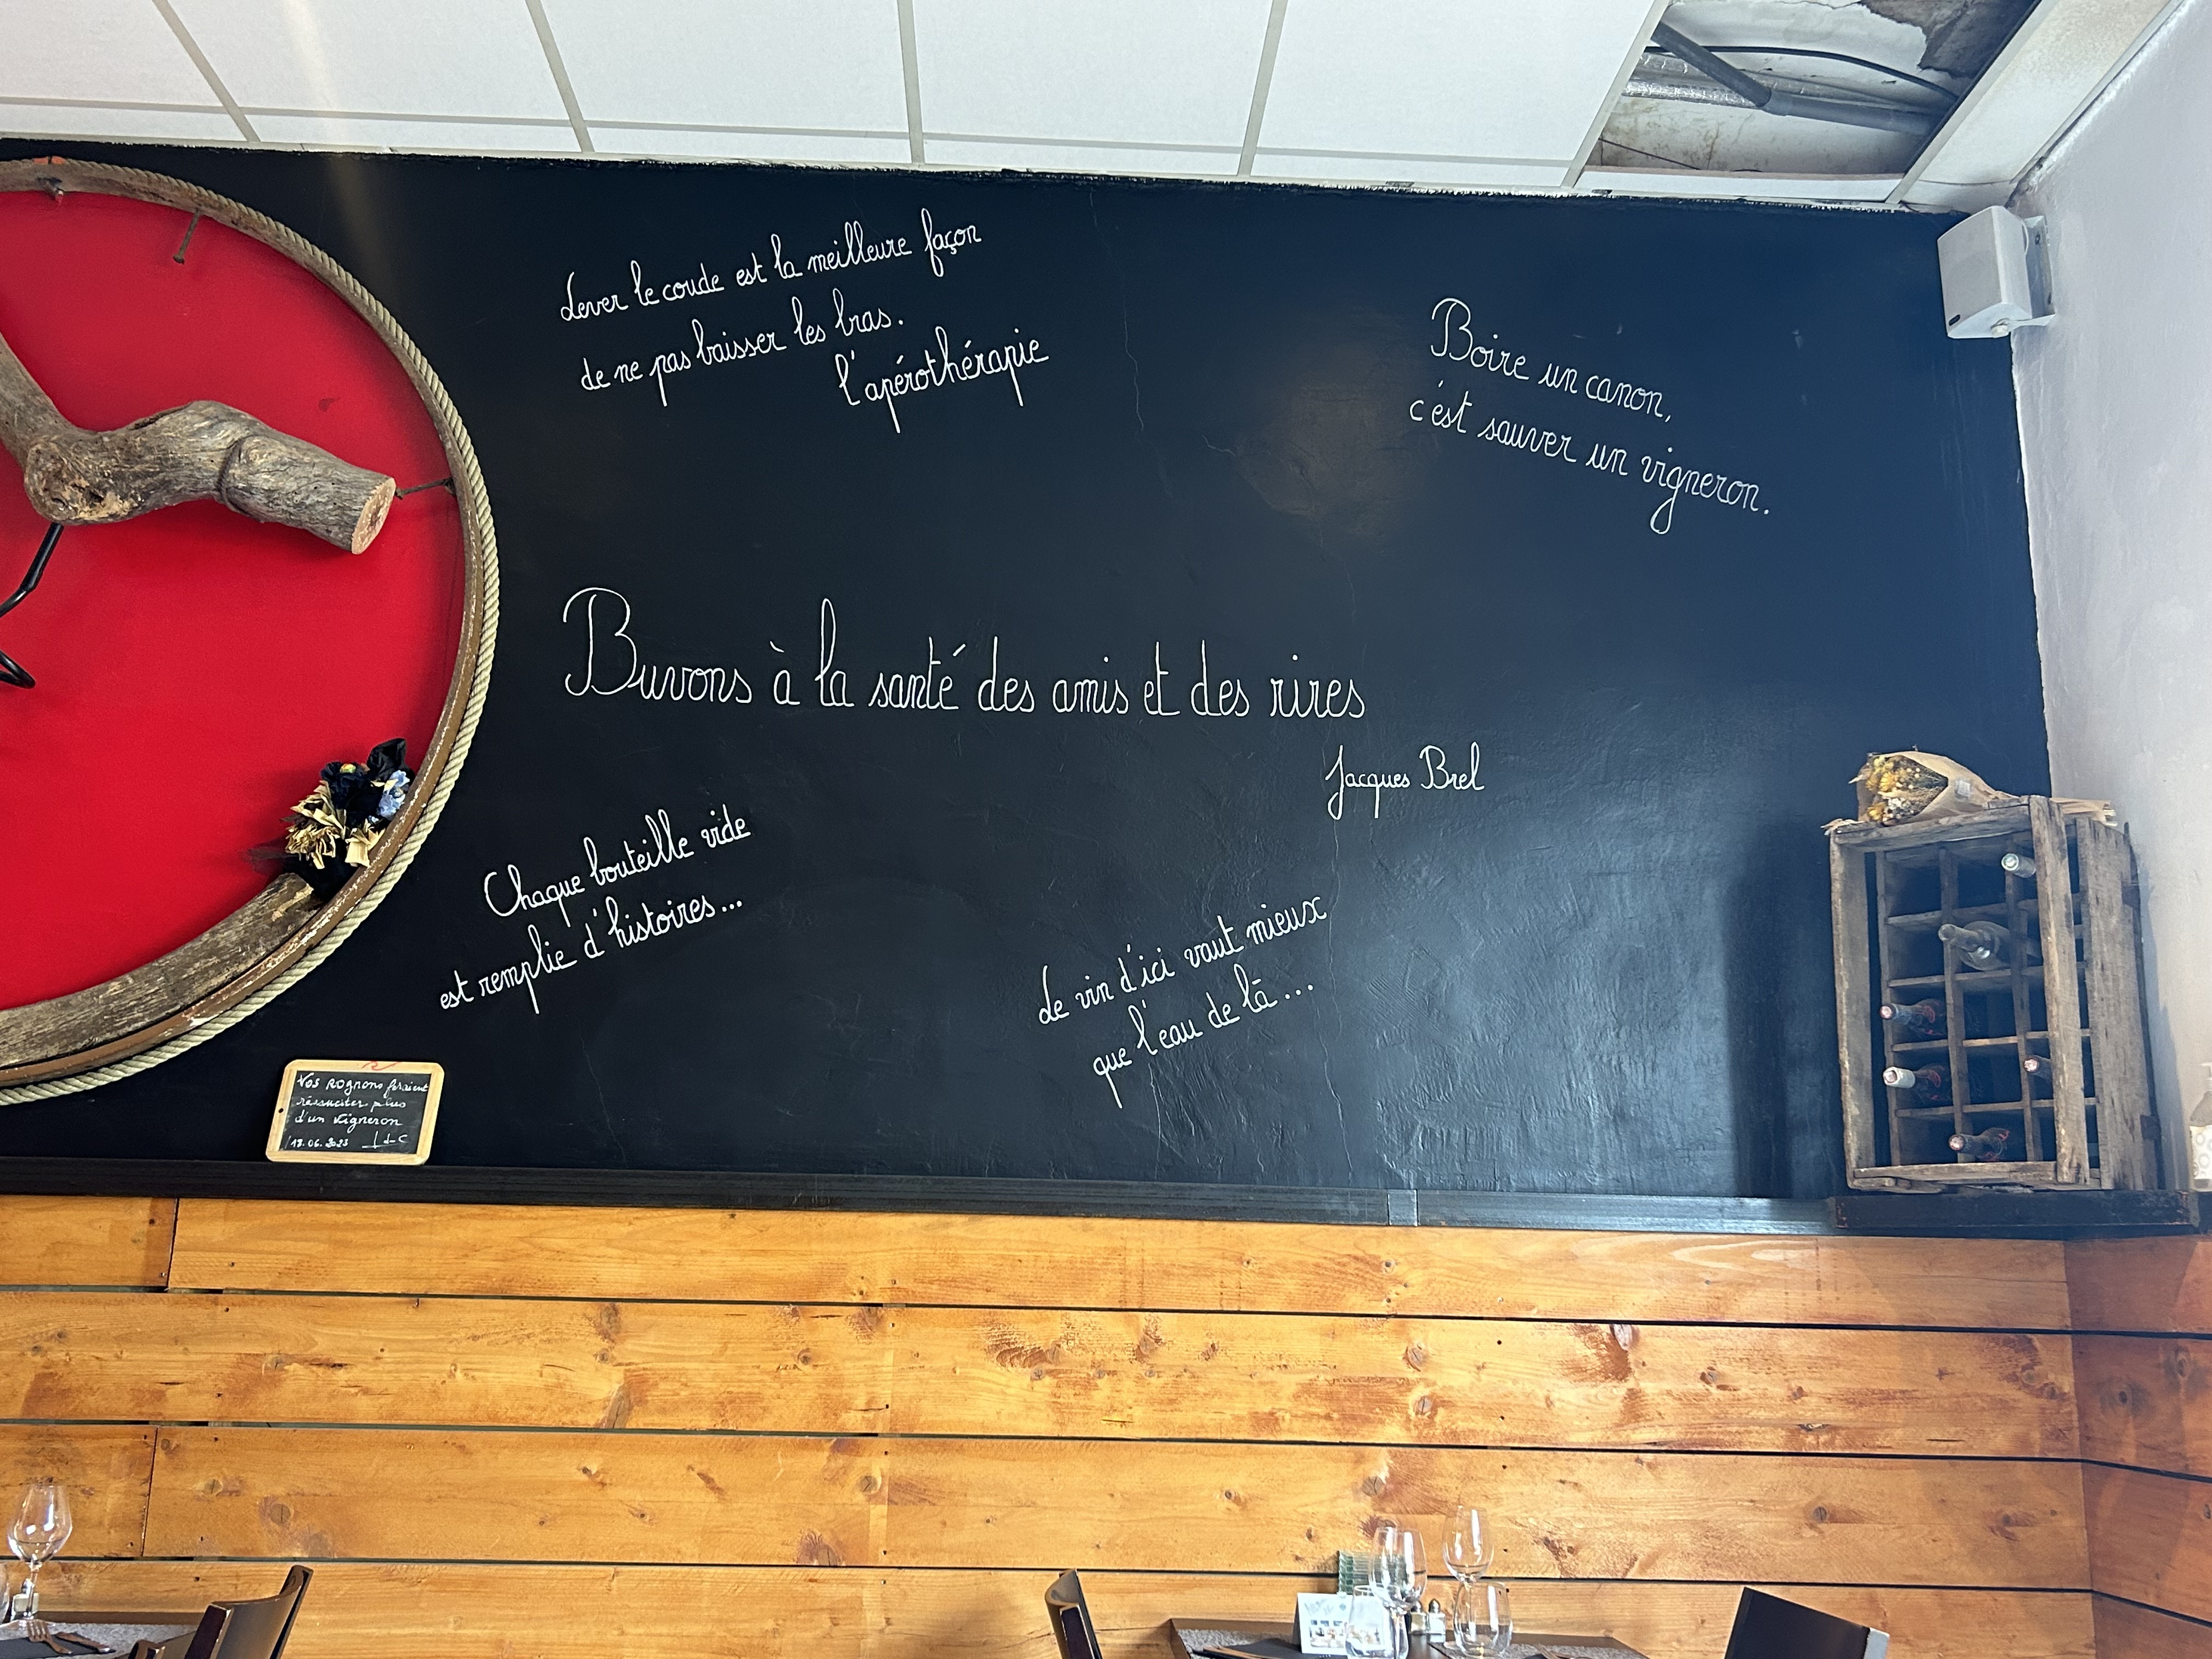 Lever le coude est la meilleure façon
de ne pas baisser les bras.
l'apérothérapie
Boire un canon,
c'est sauver un vigneron.
Buvons à la santé des amis et des rires
Jacques Brel
Chaque bouteille vide
est remplie d'histoires...
Le vin d'ici vaut mieux
que l'eau de là...
Vos Rognons feraient
réssusciter plus
d'un Vigneron